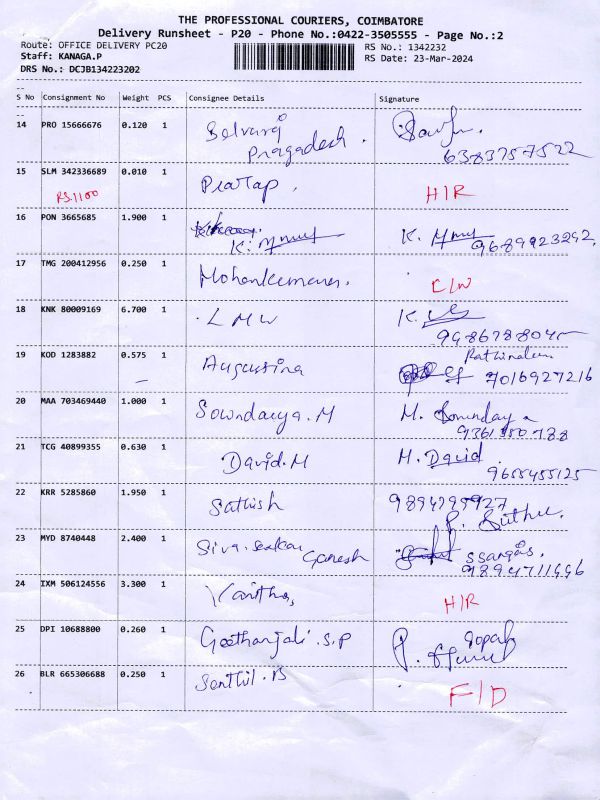 THE PROFESSIONAL COURIERS, COIMBATORE
Delivery Runsheet - P20 - Phone No.:0422-3505555 - Page No.:2
Route: OFFICE DELIVERY PC20
RS No.: 1342232
Staff: KANAGA.P
RS Date: 23-Mar-2024
DRS No.: DCJB134223202
S No Consignment No Weight PCS Consignee Details Signature
14 PRO 15666676 0.120 1 Selvaraj
Pragadesh.
6383757522
15 SLM 342336689 0.010 1 Pratap. H/R
RS.1100
16 PON 3665685 1.900 1
K.
K. 9689923292
17 TMG 200412956 0.250 1 Mohankumar. C/W
18 KNK 80009169 6.700 1 LMW K.
19 KOD 1283882 0.575 1 Augustina
7016927216
20 MAA 703469440 1.000 1 Sowndarya.M M. Sowndarya
21 TCG 40899355 0.630 1 David.M M. David
9655455125
22 KRR 5285860 1.950 1 Sathish
23 MYD 8740448 2.400 1 Siva Ganesh
24 IXM 506124556 3.300 1 H/R
25 DPI 10688800 0.260 1 Geethanjali.S.P
26 BLR 665306688 0.250 1 Senthil.B F/D